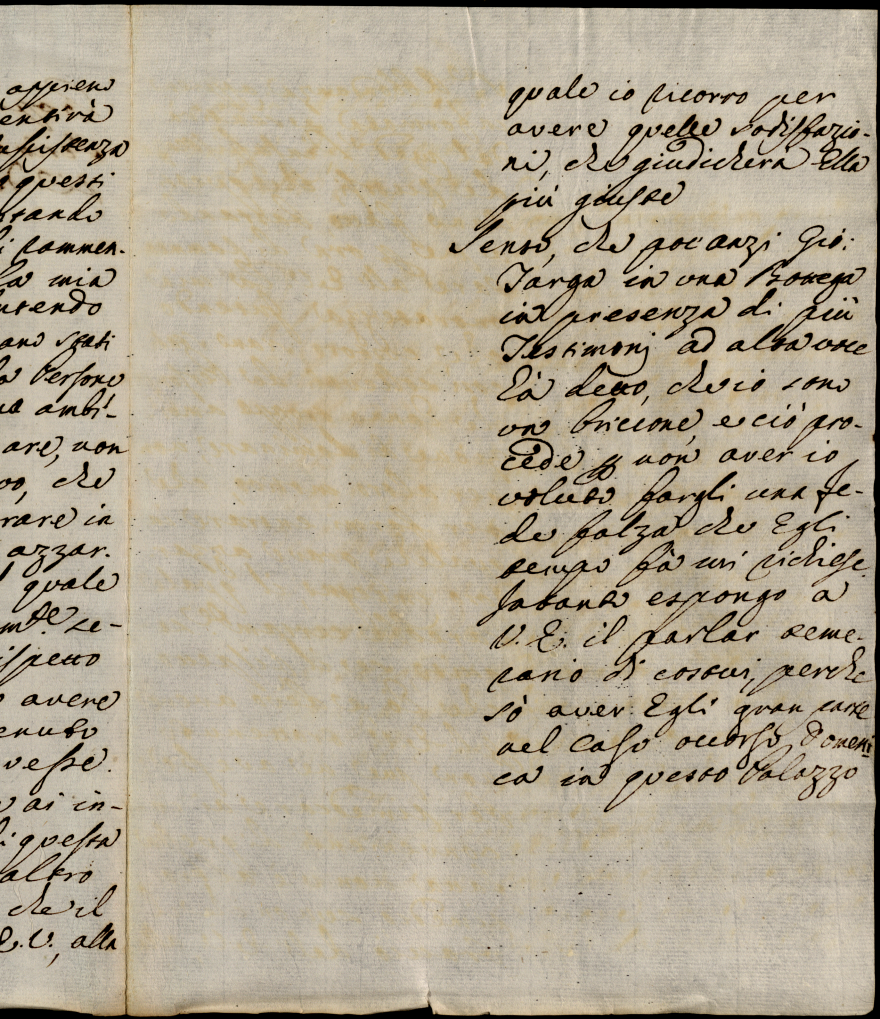 appieno
entirà
assistenza
questi
stando
i commen-
la mia
ntendo
ano stati
Persone
na ambi-
are, non
vo, che
rare in
azzar.
l quale
se-
ispetto
avere
enuto
vesse.
ai in-
i questa
altro
che il
E.V., alla
quale io ricorro per
avere quelle sodisfazio-
ni, che giudicherà Ella
più giuste
Sento, che poc'anzi Gio:
Targa in una Bottega
in presenza di più
Testimonj ad alta voce
hà detto, che io sono
un briccone, e ciò pro-
cede p non aver io
voluto fargli una fe-
de falza che Egli
tempo fà mi richiese.
Tatanto espongo a
V. E. il parlar teme-
rario di costui, perche
sò aver Egli gran parte
nel Caso occorso Domeni
ca in questo Palazzo